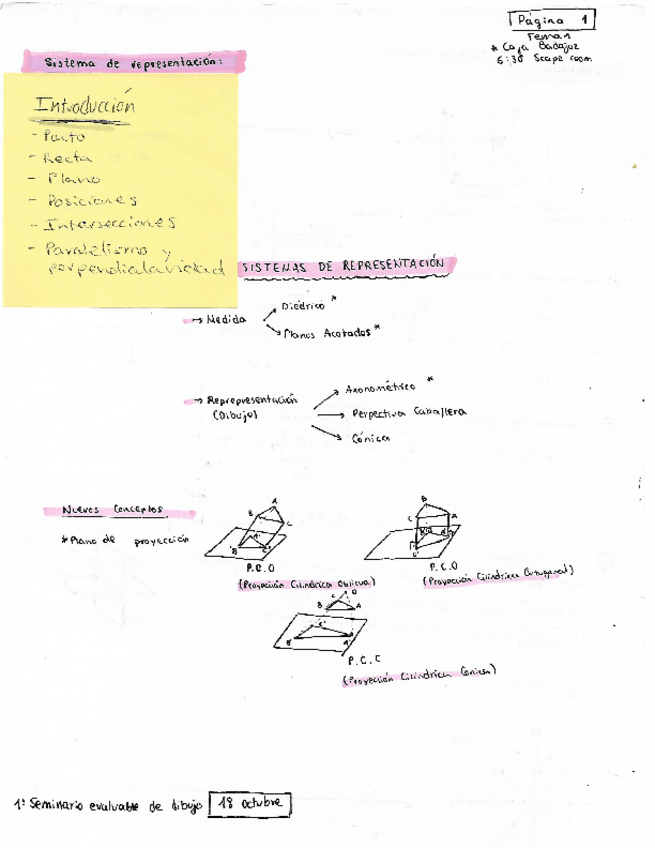 Página 1
Tema 1
* Caja Badajoz
6:30 Scape room
Sistema de representación:
Introducción
- Punto
- Recta
- Plano
- Posiciones
- Intersecciones
- Paralelismo y
perpendicularidad
SISTEMAS DE REPRESENTACIÓN
→ Medida
Diédrico *
Planos Acotados *
→ Reprepresentación
(Dibujo)
Axonométrico *
Perpectiva Caballera
Cónica
Nuevos Conceptos
* Plano de proyección
A
B
C
A'
B'
C'
P.C.O
(Proyección Cilíndrica Oblicua)
B
C
A
P.C.O
(Proyección Cilíndrica Ortogonal)
C
O
B
A
C'
B'
A'
P.C.C
(Proyección Cilíndrica Cónica)
1º Seminario evaluable de dibujo 18 octubre